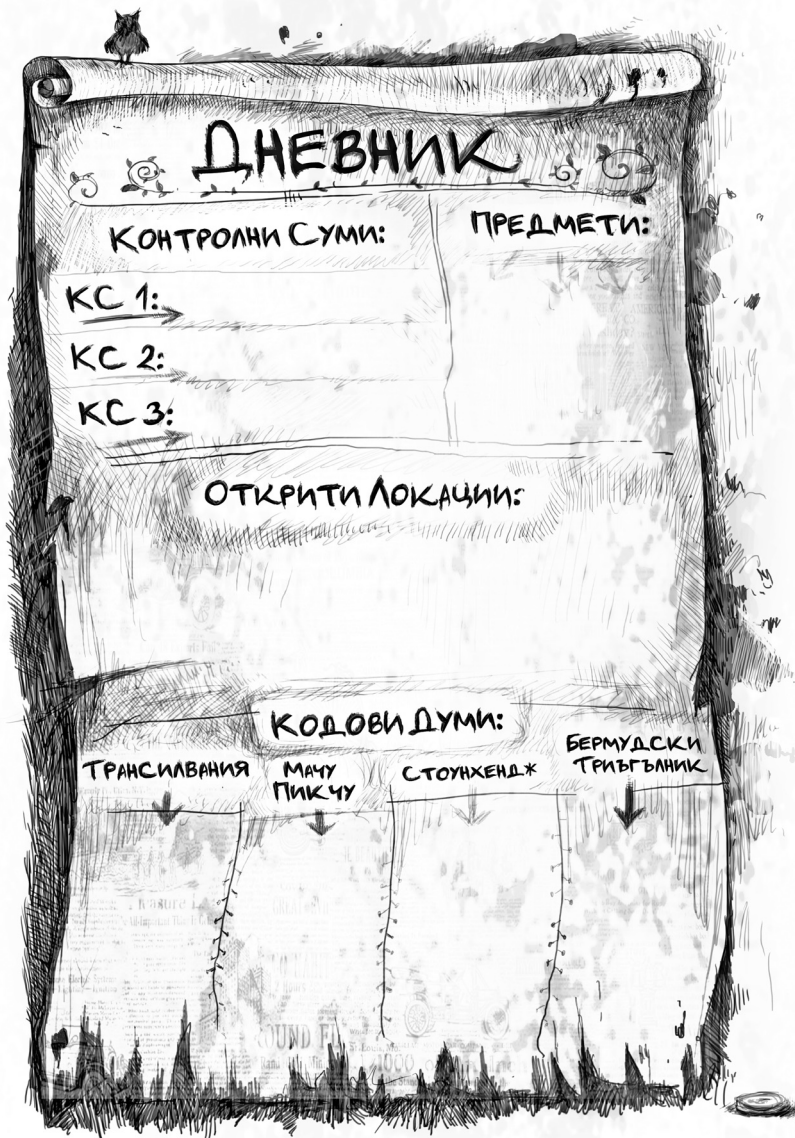 ДНЕВНИК
КОНТРОЛНИ СУМИ:
ПРЕДМЕТИ:
КС 1:
КС 2:
КС 3:
ОТКРИТИ ЛОКАЦИИ:
КОДОВИ ДУМИ:
ТРАНСИЛВАНИЯ
МАЧУ
ПИКЧУ
СТОУНХЕНДЖ
БЕРМУДСКИ
ТРИЪГЪЛНИК